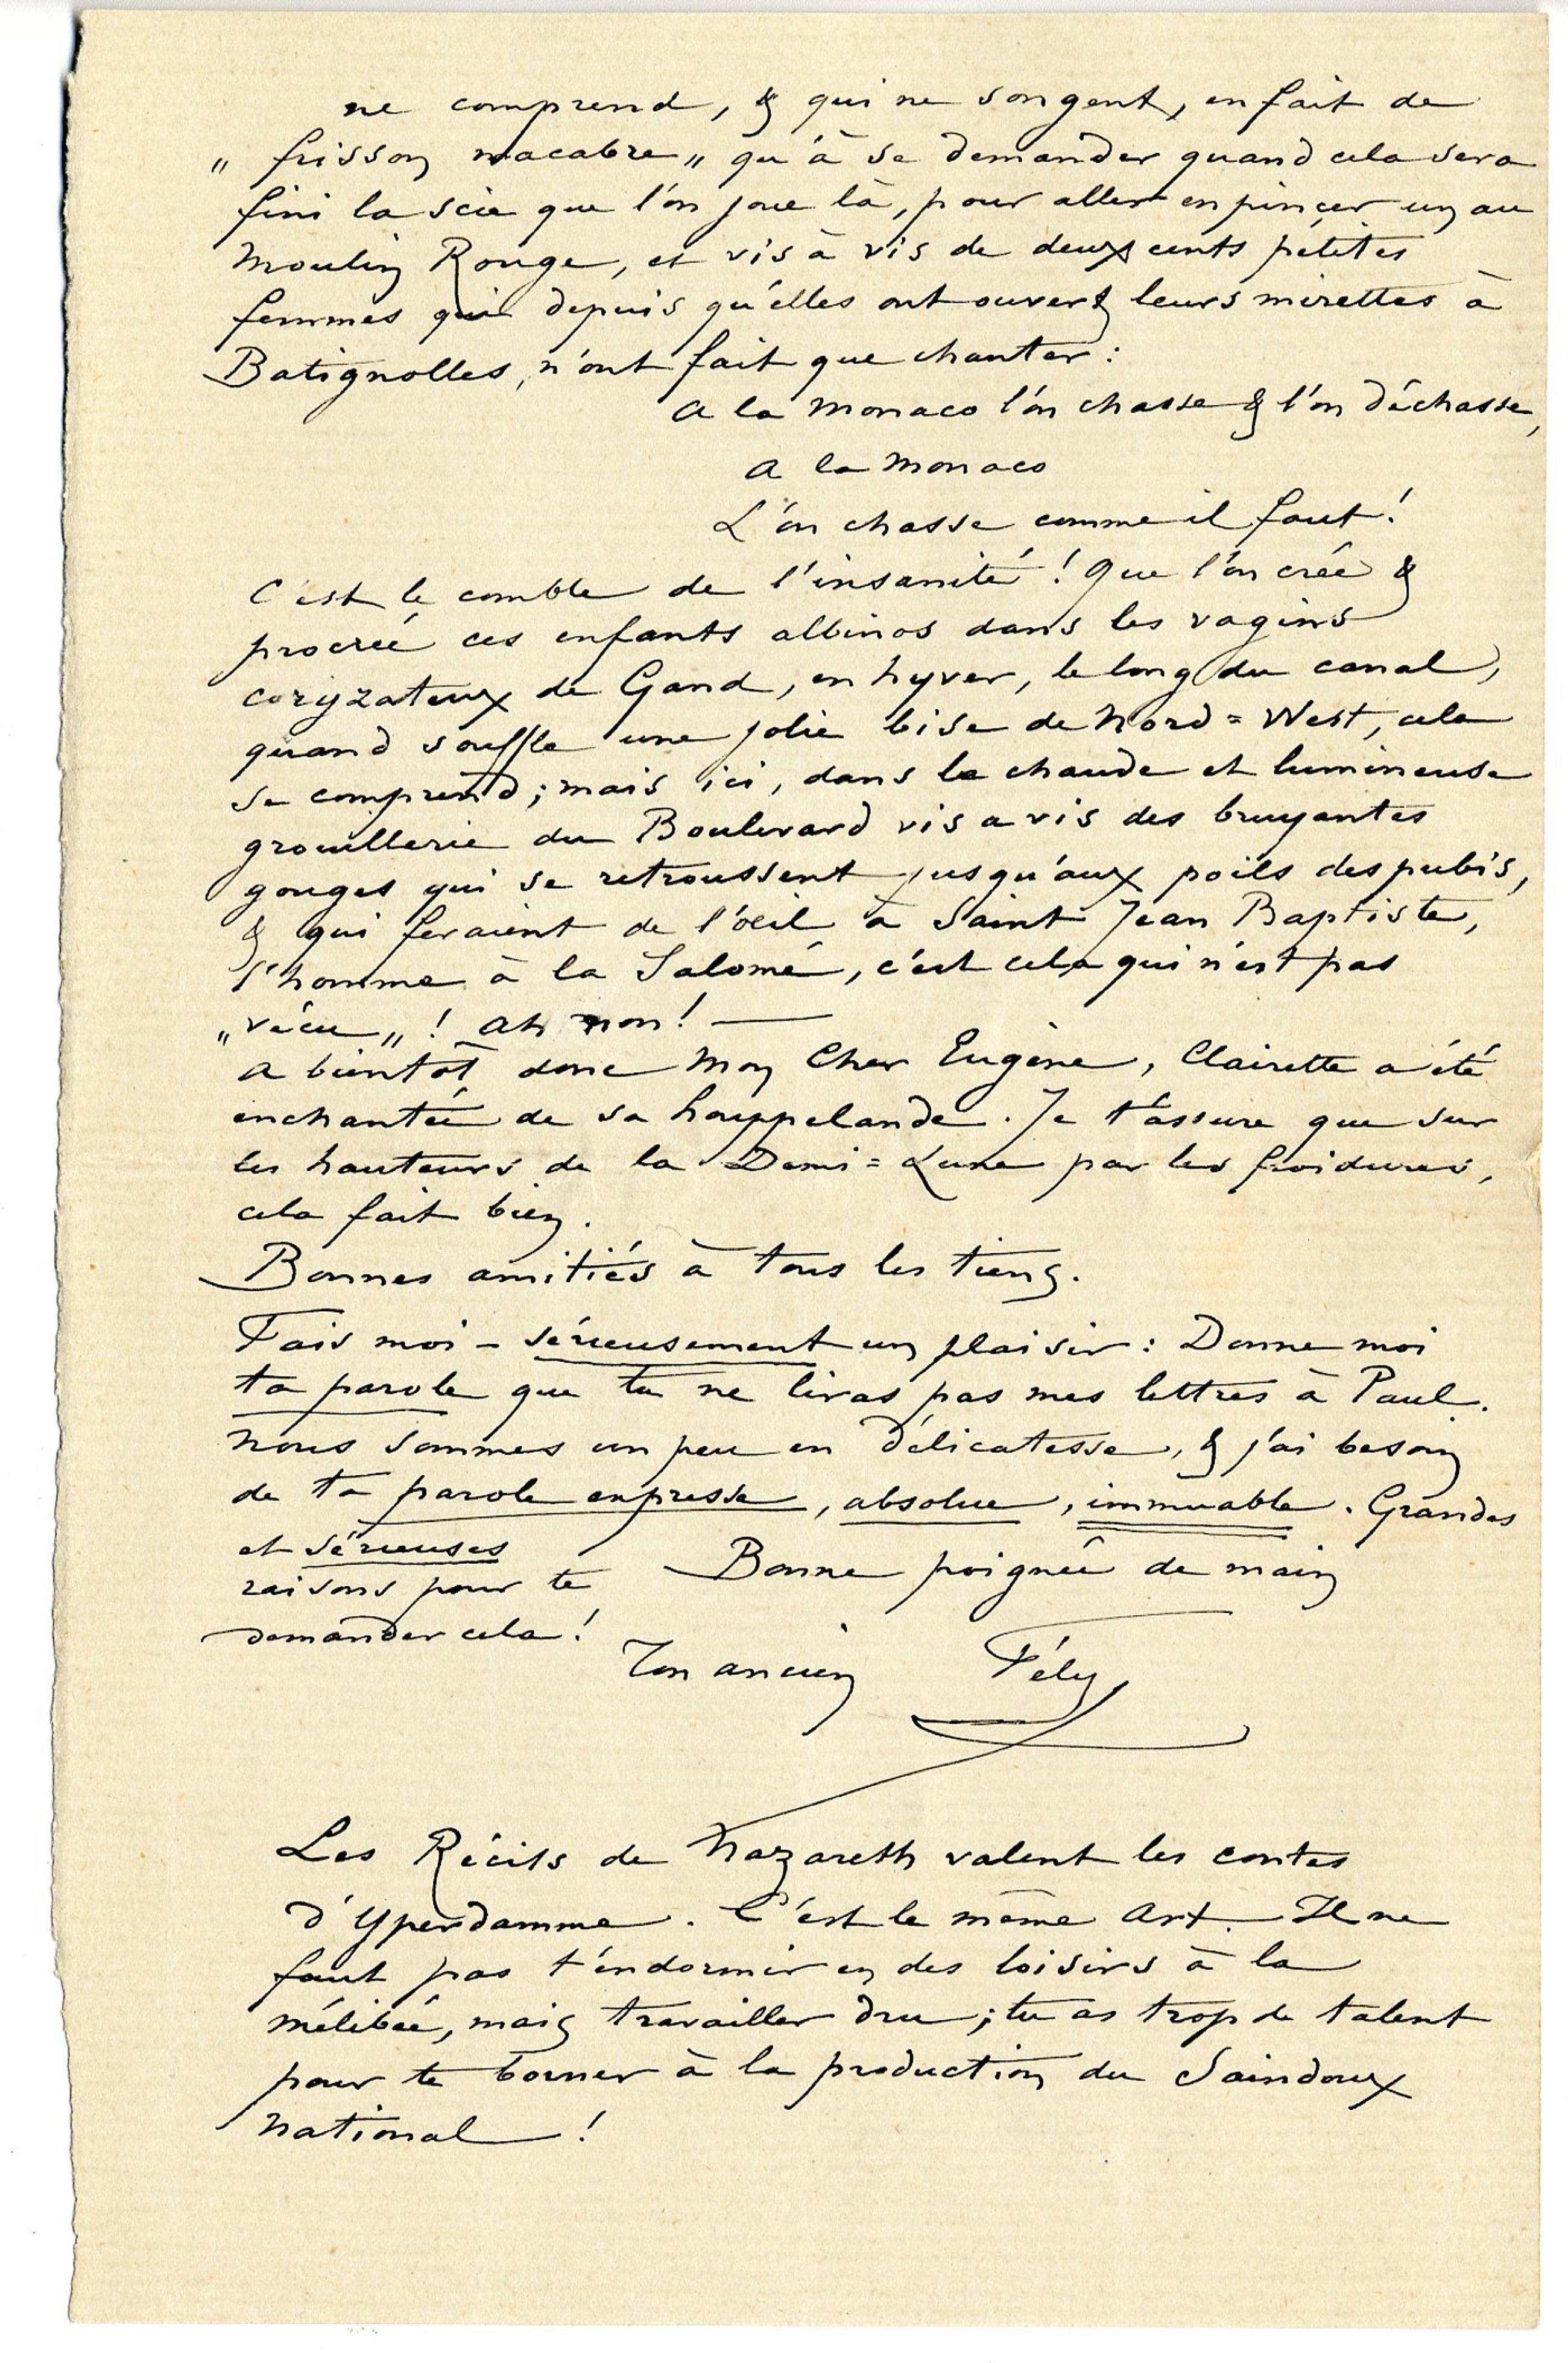 ne comprend, & qui ne songent, en fait de
„ frisson macabre „ qu'à se demander quand cela sera
fini la scie que l'on joue là, pour aller en pincer un au
Moulin Rouge, et vis à vis de deux cents petites
femmes qui depuis qu'elles ont ouvert leurs mirettes à
Batignolles, n'ont fait que chanter :
A la Monaco l'on chasse & l'on déchasse,
A la Monaco
L'on chasse comme il faut !
C'est le comble de l'insanité ! Que l'on crée &
procrée ces enfants albinos dans les vagins
coryzateux de Gand, en hyver, le long du canal,
quand souffle une jolie bise de Nord = West, cela
se comprend ; mais ici, dans la chaude et lumineuse
grouillerie du Boulevard vis a vis des bruyantes
gouges qui se retroussent jusqu'aux poils des pubis,
& qui feraient de l'œil à Saint Jean Baptiste,
l'homme à la Salomé, c'est cela qui n'est pas
„ vécu „ ! Ah non ! —
A bientôt donc Mon Cher Eugène, Clairette a été
enchantée de sa houppelande. Je t'assure que sur
les hauteurs de la Demi = Lune par les froidures,
cela fait bien.
Bonnes amitiés à tous les tiens.
Fais moi – sérieusement un plaisir : Donne moi
ta parole que tu ne liras pas mes lettres à Paul.
Nous sommes un peu en délicatesse, & j'ai besoin
de ta parole expresse, absolue, immuable. Grandes
et sérieuses
raisons pour te
demander cela !
Bonne poignée de main
Ton ancien Fély
Les Récits de Nazareth valent les contes
d'Yperdamme. C'est le même Art. Il ne
faut pas t'endormir en des loisirs à la
mélibée, mais travailler dru ; tu as trop de talent
pour te borner à la production du Saindoux
National !